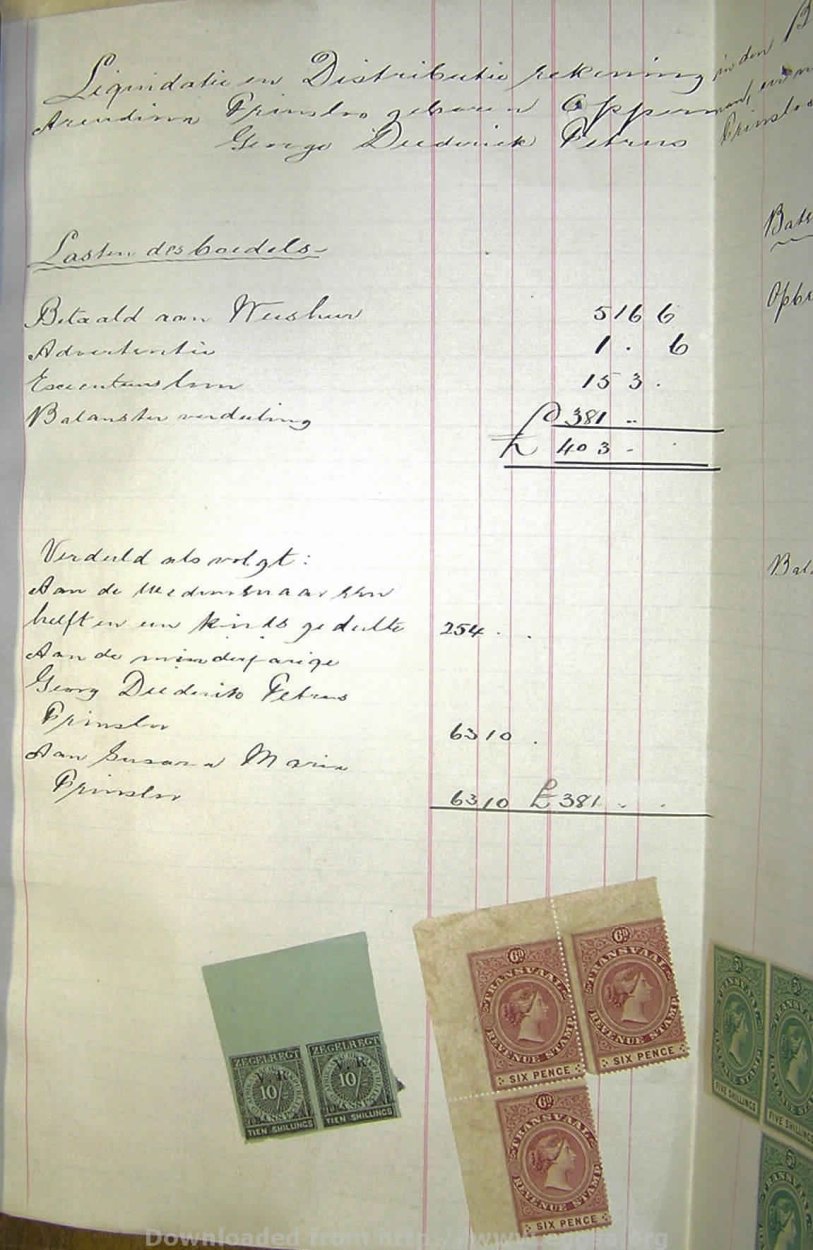 Liquidatie en Distributie rekening in den B
Arendina Prinsloo geboren Opperman, en
George Diederick Petrus Prinsloo
Lasten des boedels
Betaald aan Weeshuis 5 16 6
Advertentie 1 . 6
Executeursloon 15 3 .
Balans ter verdeeling £ 381 ..
£ 403 - .
Verdeeld als volgt:
Aan de
helft en een kinds gedeelte 254 . .
Aan de minderjarige
Georg Diederik Petrus
Prinsloo 63 10 .
Aan Susara Maria
Prinsloo 63 10 £ 381 . .
Bate
Opbr
Bal
ZEGELREGT
V. R.
10/
TIEN SHILLINGS
ZEGELREGT
V. R.
10/
TIEN SHILLINGS
6D
TRANSVAAL
REVENUE STAMP
SIX PENCE
6D
TRANSVAAL
REVENUE STAMP
SIX PENCE
6D
TRANSVAAL
REVENUE STAMP
SIX PENCE
5/
TRANSVAAL
REVENUE STAMP
FIVE SHILLINGS
5/
FIVE SHILLINGS
5/
Downloaded from http://www